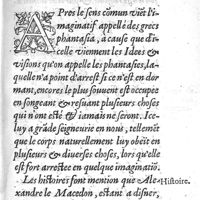 APres le sens cõmun viẽt l'i-
maginatif appellé des grecs
phantasia, a cause que d'i-
celle viennent les Idees &
visions qu'on appelle les phantasies, la-
quelle n'a point d'arrest si ce n'est en dor-
mant, encores le plus souvent est occupee
en songeant & resuant plusieurs choses
qui ont esté & iamais ne seront. Ice-
luy a grãde seigneurie en nous, tellemẽt
que le corps naturellement luy obeit en
plusieurs & diuerses choses, lors qu'elle
est fort arrestee en quelque imaginatiõ.
Les histoires font mention que Ale-
xandre le Macedon, estant a disner,
Histoire.